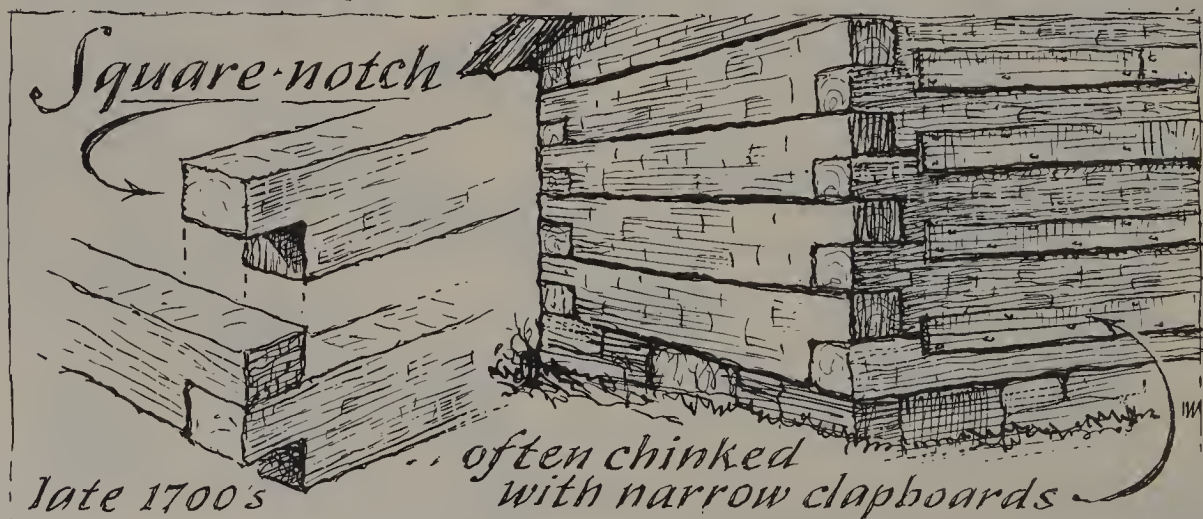 Square-notch
late 1700's
.. often chinked
with narrow clapboards